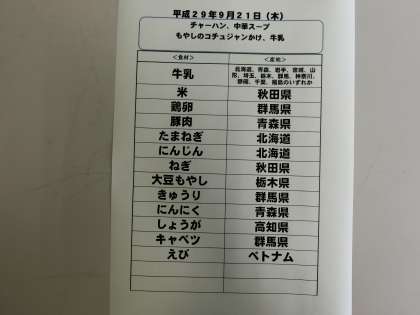 平成29年9月21日(木)
チャーハン、中華スープ
もやしのコチュジャンかけ、牛乳
<食材> <産地>
牛乳 北海道、青森、岩手、宮城、山
形、埼玉、栃木、群馬、神奈川、
静岡、千葉、福島のいずれか
米 秋田県
鶏卵 群馬県
豚肉 青森県
たまねぎ 北海道
にんじん 北海道
ねぎ 秋田県
大豆もやし 栃木県
きゅうり 群馬県
にんにく 青森県
しょうが 高知県
キャベツ 群馬県
えび ベトナム